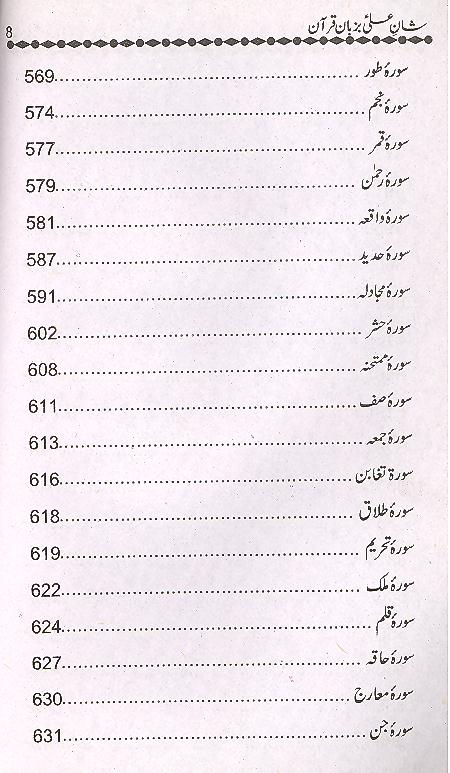 شانِ علیؑ بزبان قرآن 8
سورۂ طور ........................................................ 569
سورۂ نجم ........................................................ 574
سورۂ قمر ........................................................ 577
سورۂ رحمٰن ........................................................ 579
سورۂ واقعہ ........................................................ 581
سورۂ حدید ........................................................ 587
سورۂ مجادلہ ........................................................ 591
سورۂ حشر ........................................................ 602
سورۂ ممتحنہ ........................................................ 608
سورۂ صف ........................................................ 611
سورۂ جمعہ ........................................................ 613
سورۃ تغابن ........................................................ 616
سورۂ طلاق ........................................................ 618
سورۂ تحریم ........................................................ 619
سورۂ ملک ........................................................ 622
سورۂ قلم ........................................................ 624
سورۂ حاقہ ........................................................ 627
سورۂ معارج ........................................................ 630
سورۂ جن ........................................................ 631